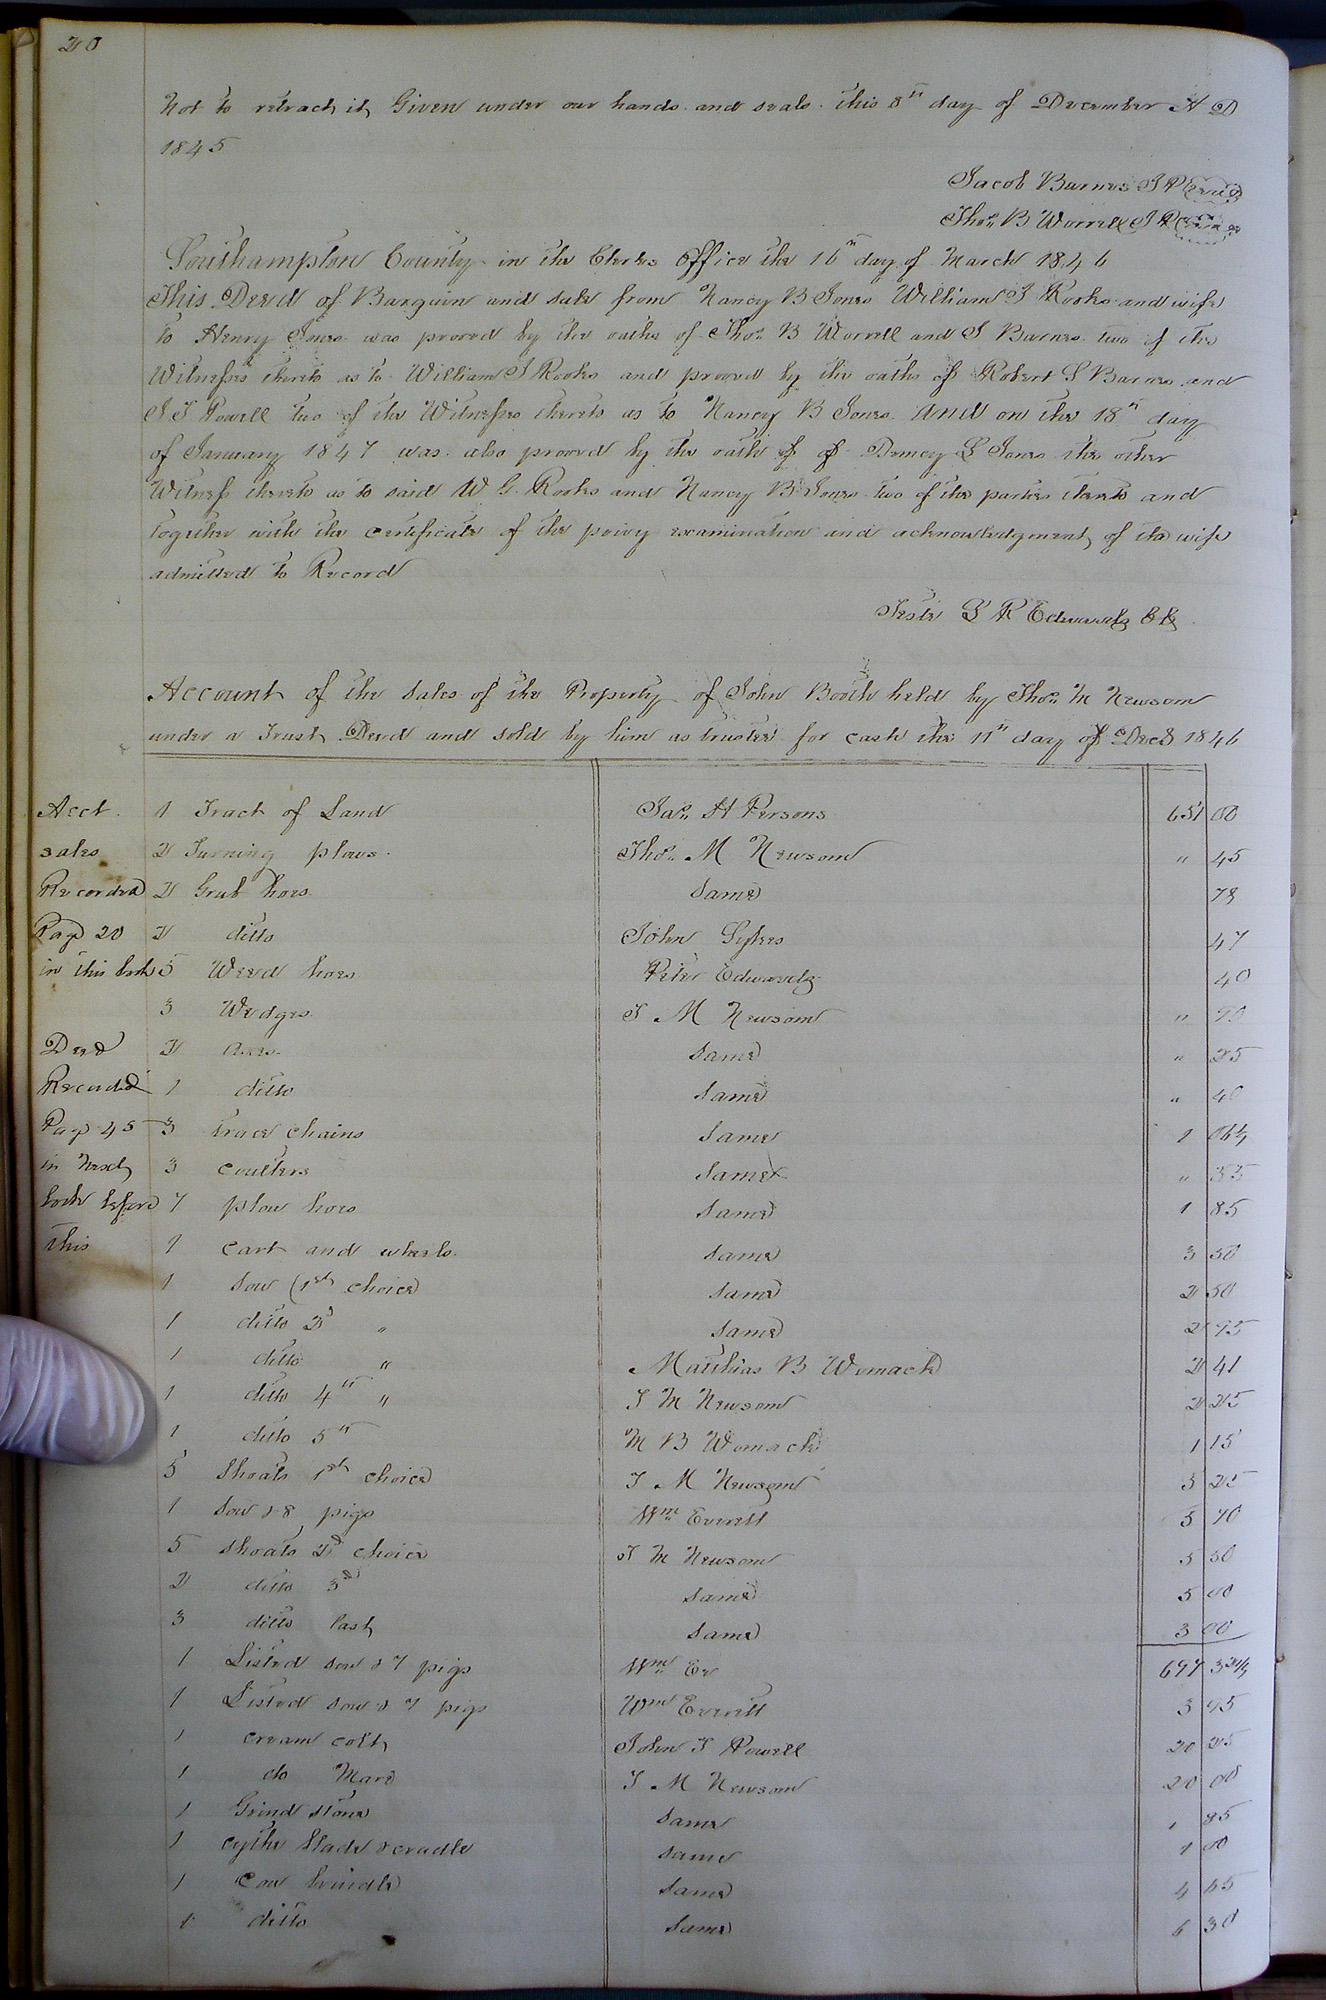 20
Not to retract it, Given under our hands and seals this 8th day of December A D
1845
Jacob Barnes J P (seal)
Thos B Worrell J P (seal)
Southampton County in the Clerks Office the 16th day of March 1846
This Deed of Bargain and sale from Nancy B Jones William G Rooks and wife
to Henry Jones was proved by the oaths of Thos B Worrell and J Barnes two of the
Witnesses thereto as to William G Rooks and proved by the oaths of Robert S Barnes and
J T Powell two of the Witnesses thereto as to Nancy B Jones and on the 18th day
of January 1847 was also proved by the oath of of Demcy L Jones the other
Witness thereto as to said W G Rooks and Nancy B Jones two of the parties thereto and
together with the certificate of the privy examination and acknowledgment of the wife
admitted to Record
Teste L R Edwards Clk
Account of the sales of the Property of John Booth held by Thos M Newsom
under a Trust Deed and sold by him as trustee for cash the 11th day of Decr 1846
Acct 1 Tract of Land Jas H Persons 651 00
sales 2 Turning plows Thos M Newsom " 45
Recorded 2 Grub hoes same 78
Page 20 2 ditto John Sykes 47
in this book 5 Weed hoes Peter Edwards 40
3 Wedges T M Newsom " 90
Deed 2 axes same " 25
Recorded 1 ditto same " 40
Page 45 3 trace chains same 1 06¼
in next 3 coulters same " 35
book before 7 plow hoes same 1 85
this 1 cart and wheels same 3 50
1 sow (1st choice same 2 50
1 ditto 2d " same 2 95
1 ditto " Matthias B Womack 2 41
1 ditto 4th " T M Newsom 2 25
1 ditto 5th M B Womack 1 15
5 Shoats 1st choice T M Newsom 3 25
1 Sow & 8 pigs Wm Everett 5 70
5 shoats 2d choice T M Newsom 5 50
2 ditto 3d same 5 00
3 ditto last same 3 00
1 Listed sow & 7 pigs Wm Ev 697
1 Listed sow & 7 pigs Wm Everett 3 95
1 cream colt John T Powell 20 25
1 do Mare T M Newsom 20 00
1 Grind stone same , 85
1 cythe blade & cradle same 1 00
1 Cow brindle same 4 65
1 ditto same 6 30